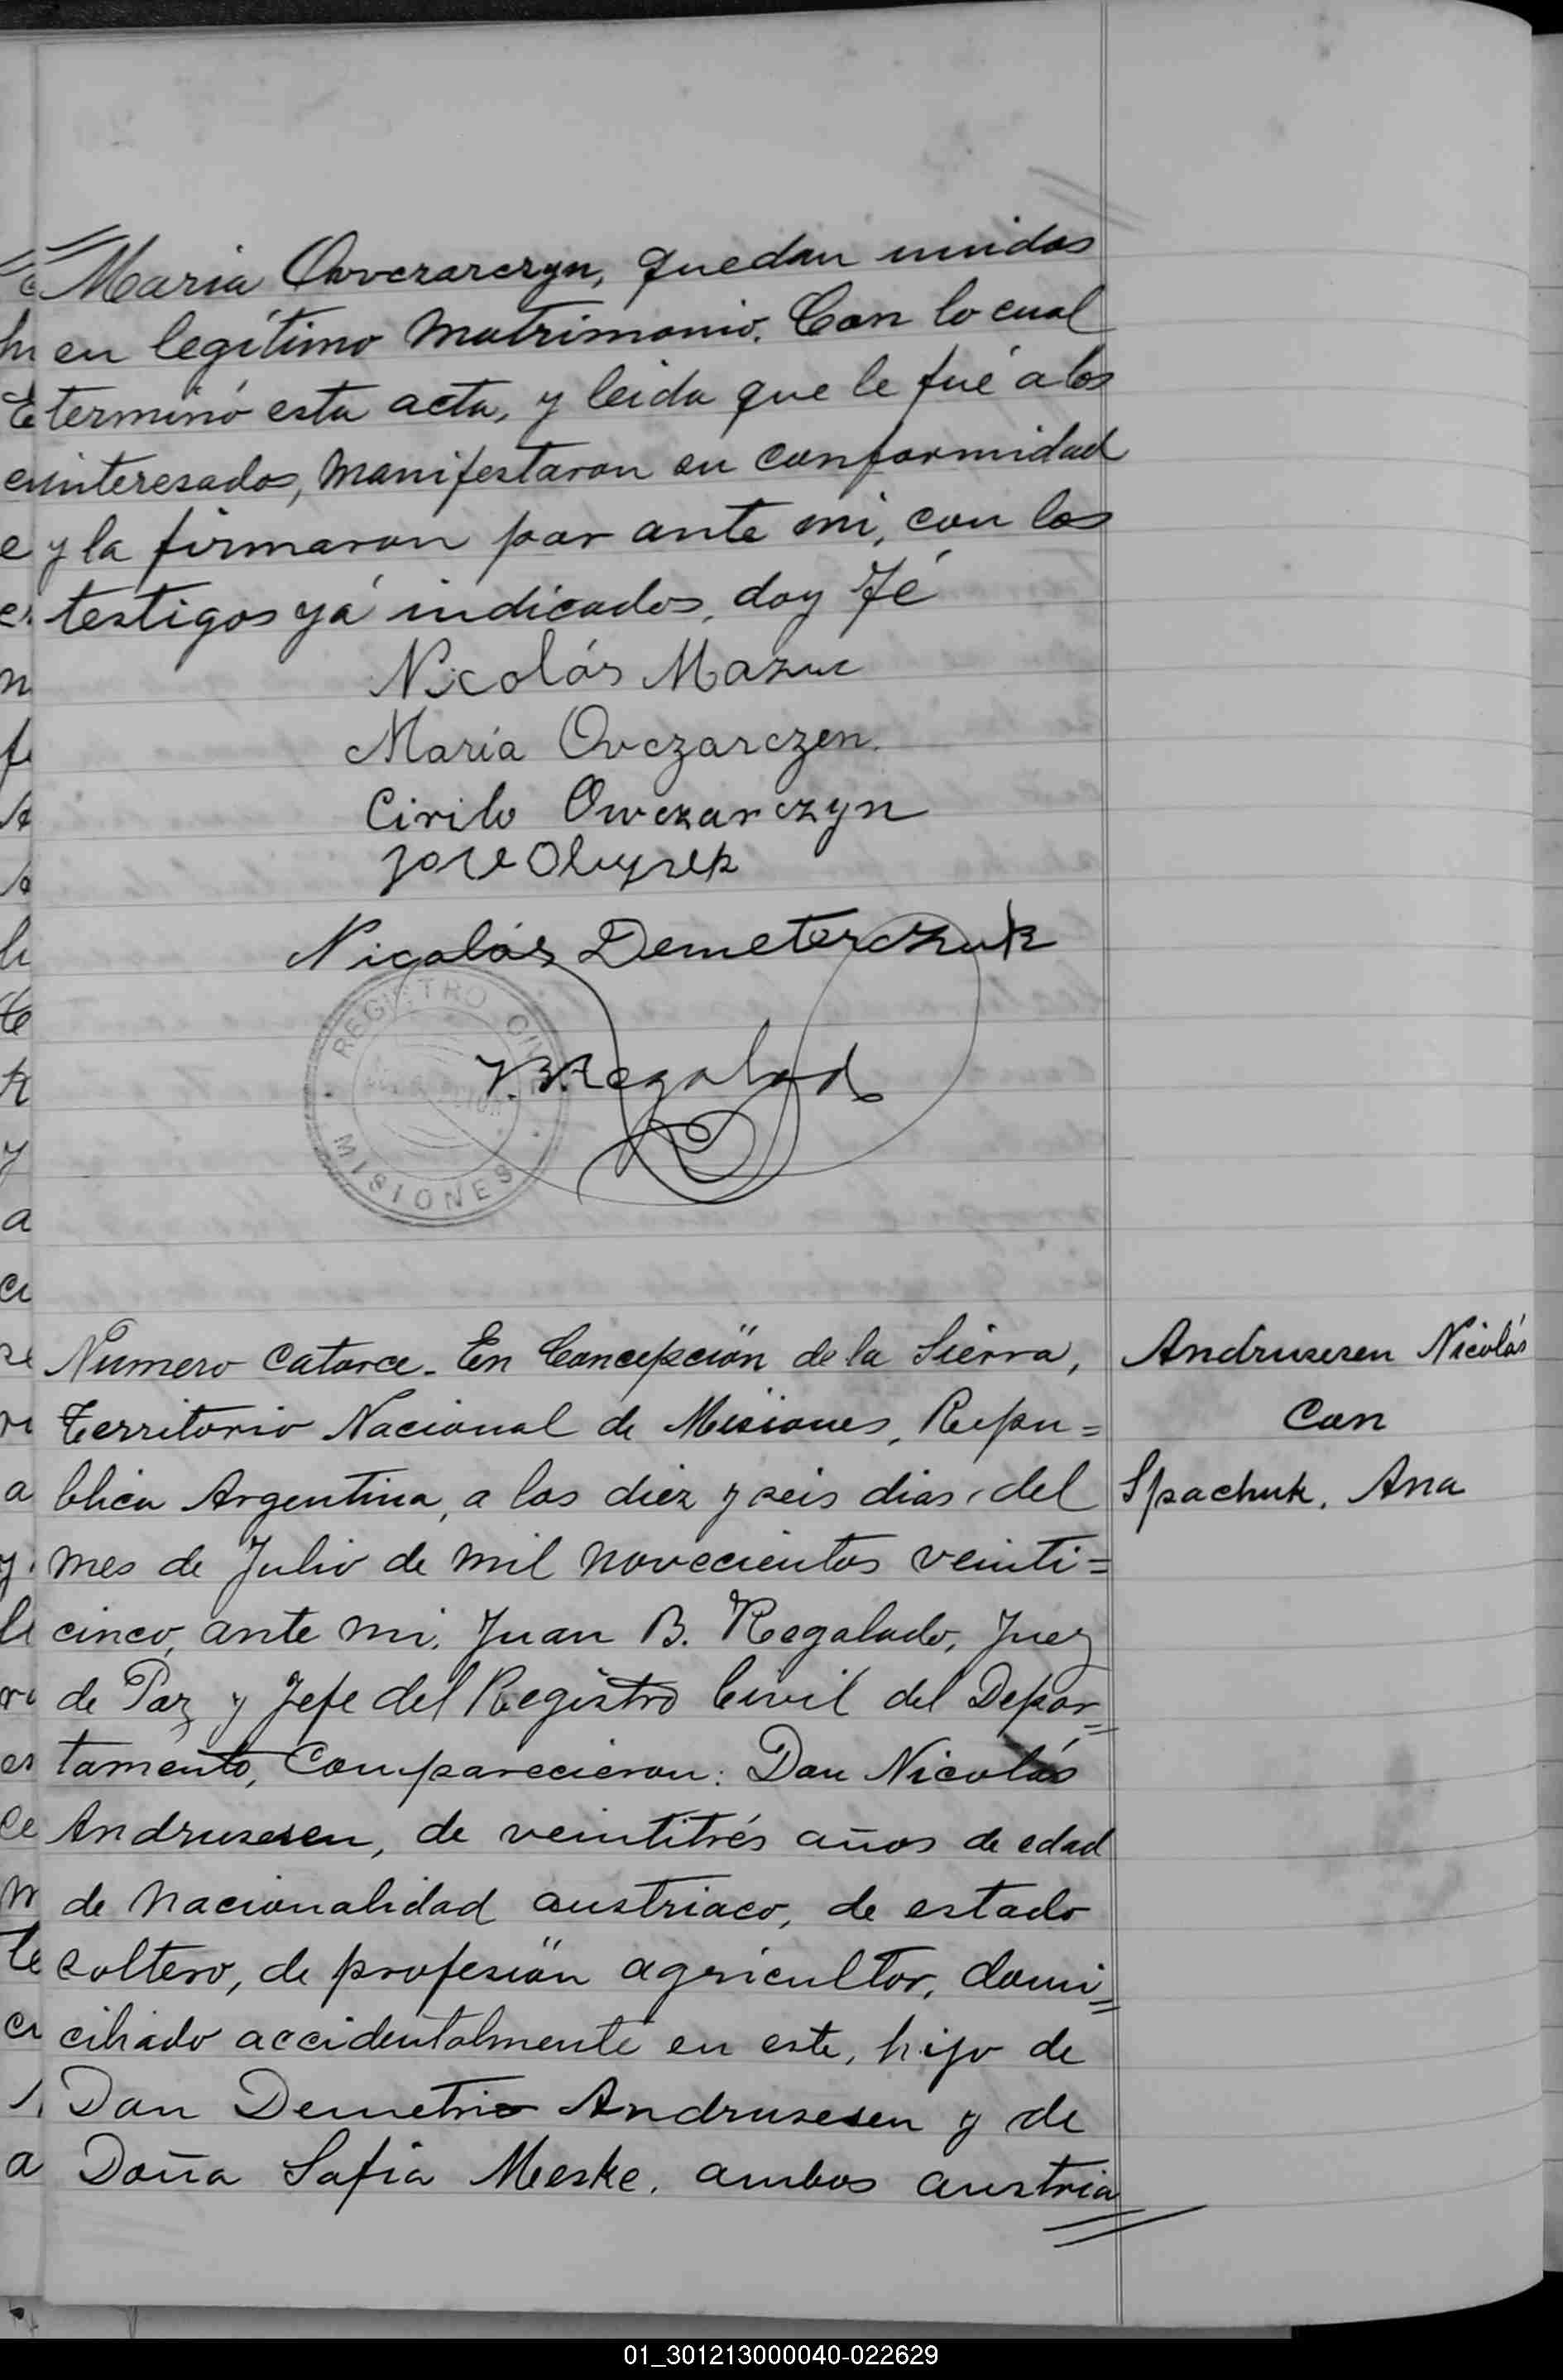 Maria Owczarczyn, quedan unidos
en legítimo matrimonio. Con lo cual
terminó esta acta, y leida que le fué a los
interesados, manifestaron su conformidad
y la firmaron por ante mi, con los
testigos yá indicados, doy fé
Nicolás Mazur
María Ovczarczen.
Cirilo Owczarczyn
José
Nicolás Demeterczuk
J. B. Regalado
REGISTRO CIVIL
MISIONES
Numero catorce - En Concepción de la Sierra,
Territorio Nacional de Misiones, Repu=
blica Argentina, a los diez y seis dias, del
mes de Julio de mil novecientos veinti=
cinco, ante mi, Juan B. Regalado, Juez
de Paz y Jefe del Registro Civil del Depar=
tamento, Comparecieron: Don Nicolás
Andruszen, de veintitrés años de edad
de nacionalidad austriaco, de estado
soltero, de profesión agricultor, domi=
ciliado accidentalmente en este, hijo de
Don Demetrio Andruszen y de
Doña Sofia Meske, ambos austria
Andruszen Nicolás
Con
Spachuk, Ana
01_301213000040-022629